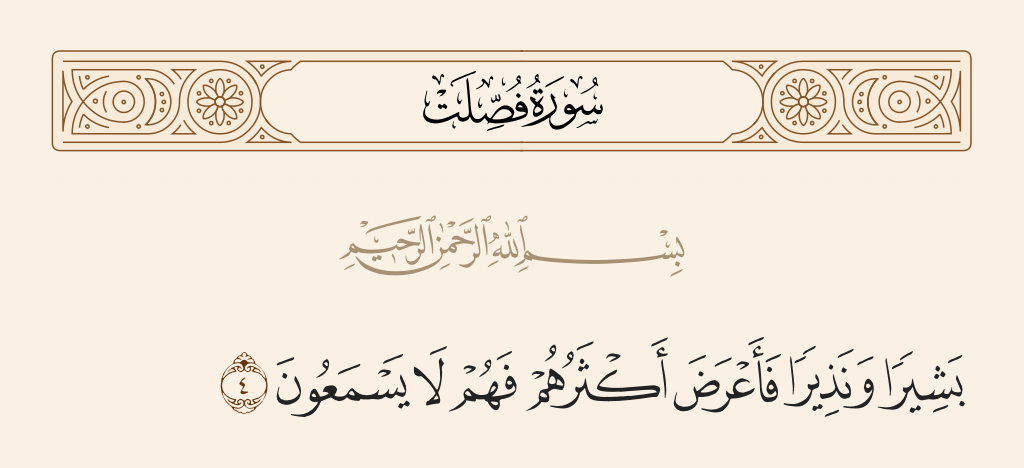 سُورَةُ فُصِّلَتْ
بِسْمِ ٱللَّهِ ٱلرَّحْمَٰنِ ٱلرَّحِيمِ
بَشِيرًا وَنَذِيرًا فَأَعْرَضَ أَكْثَرُهُمْ فَهُمْ لَا يَسْمَعُونَ ٤